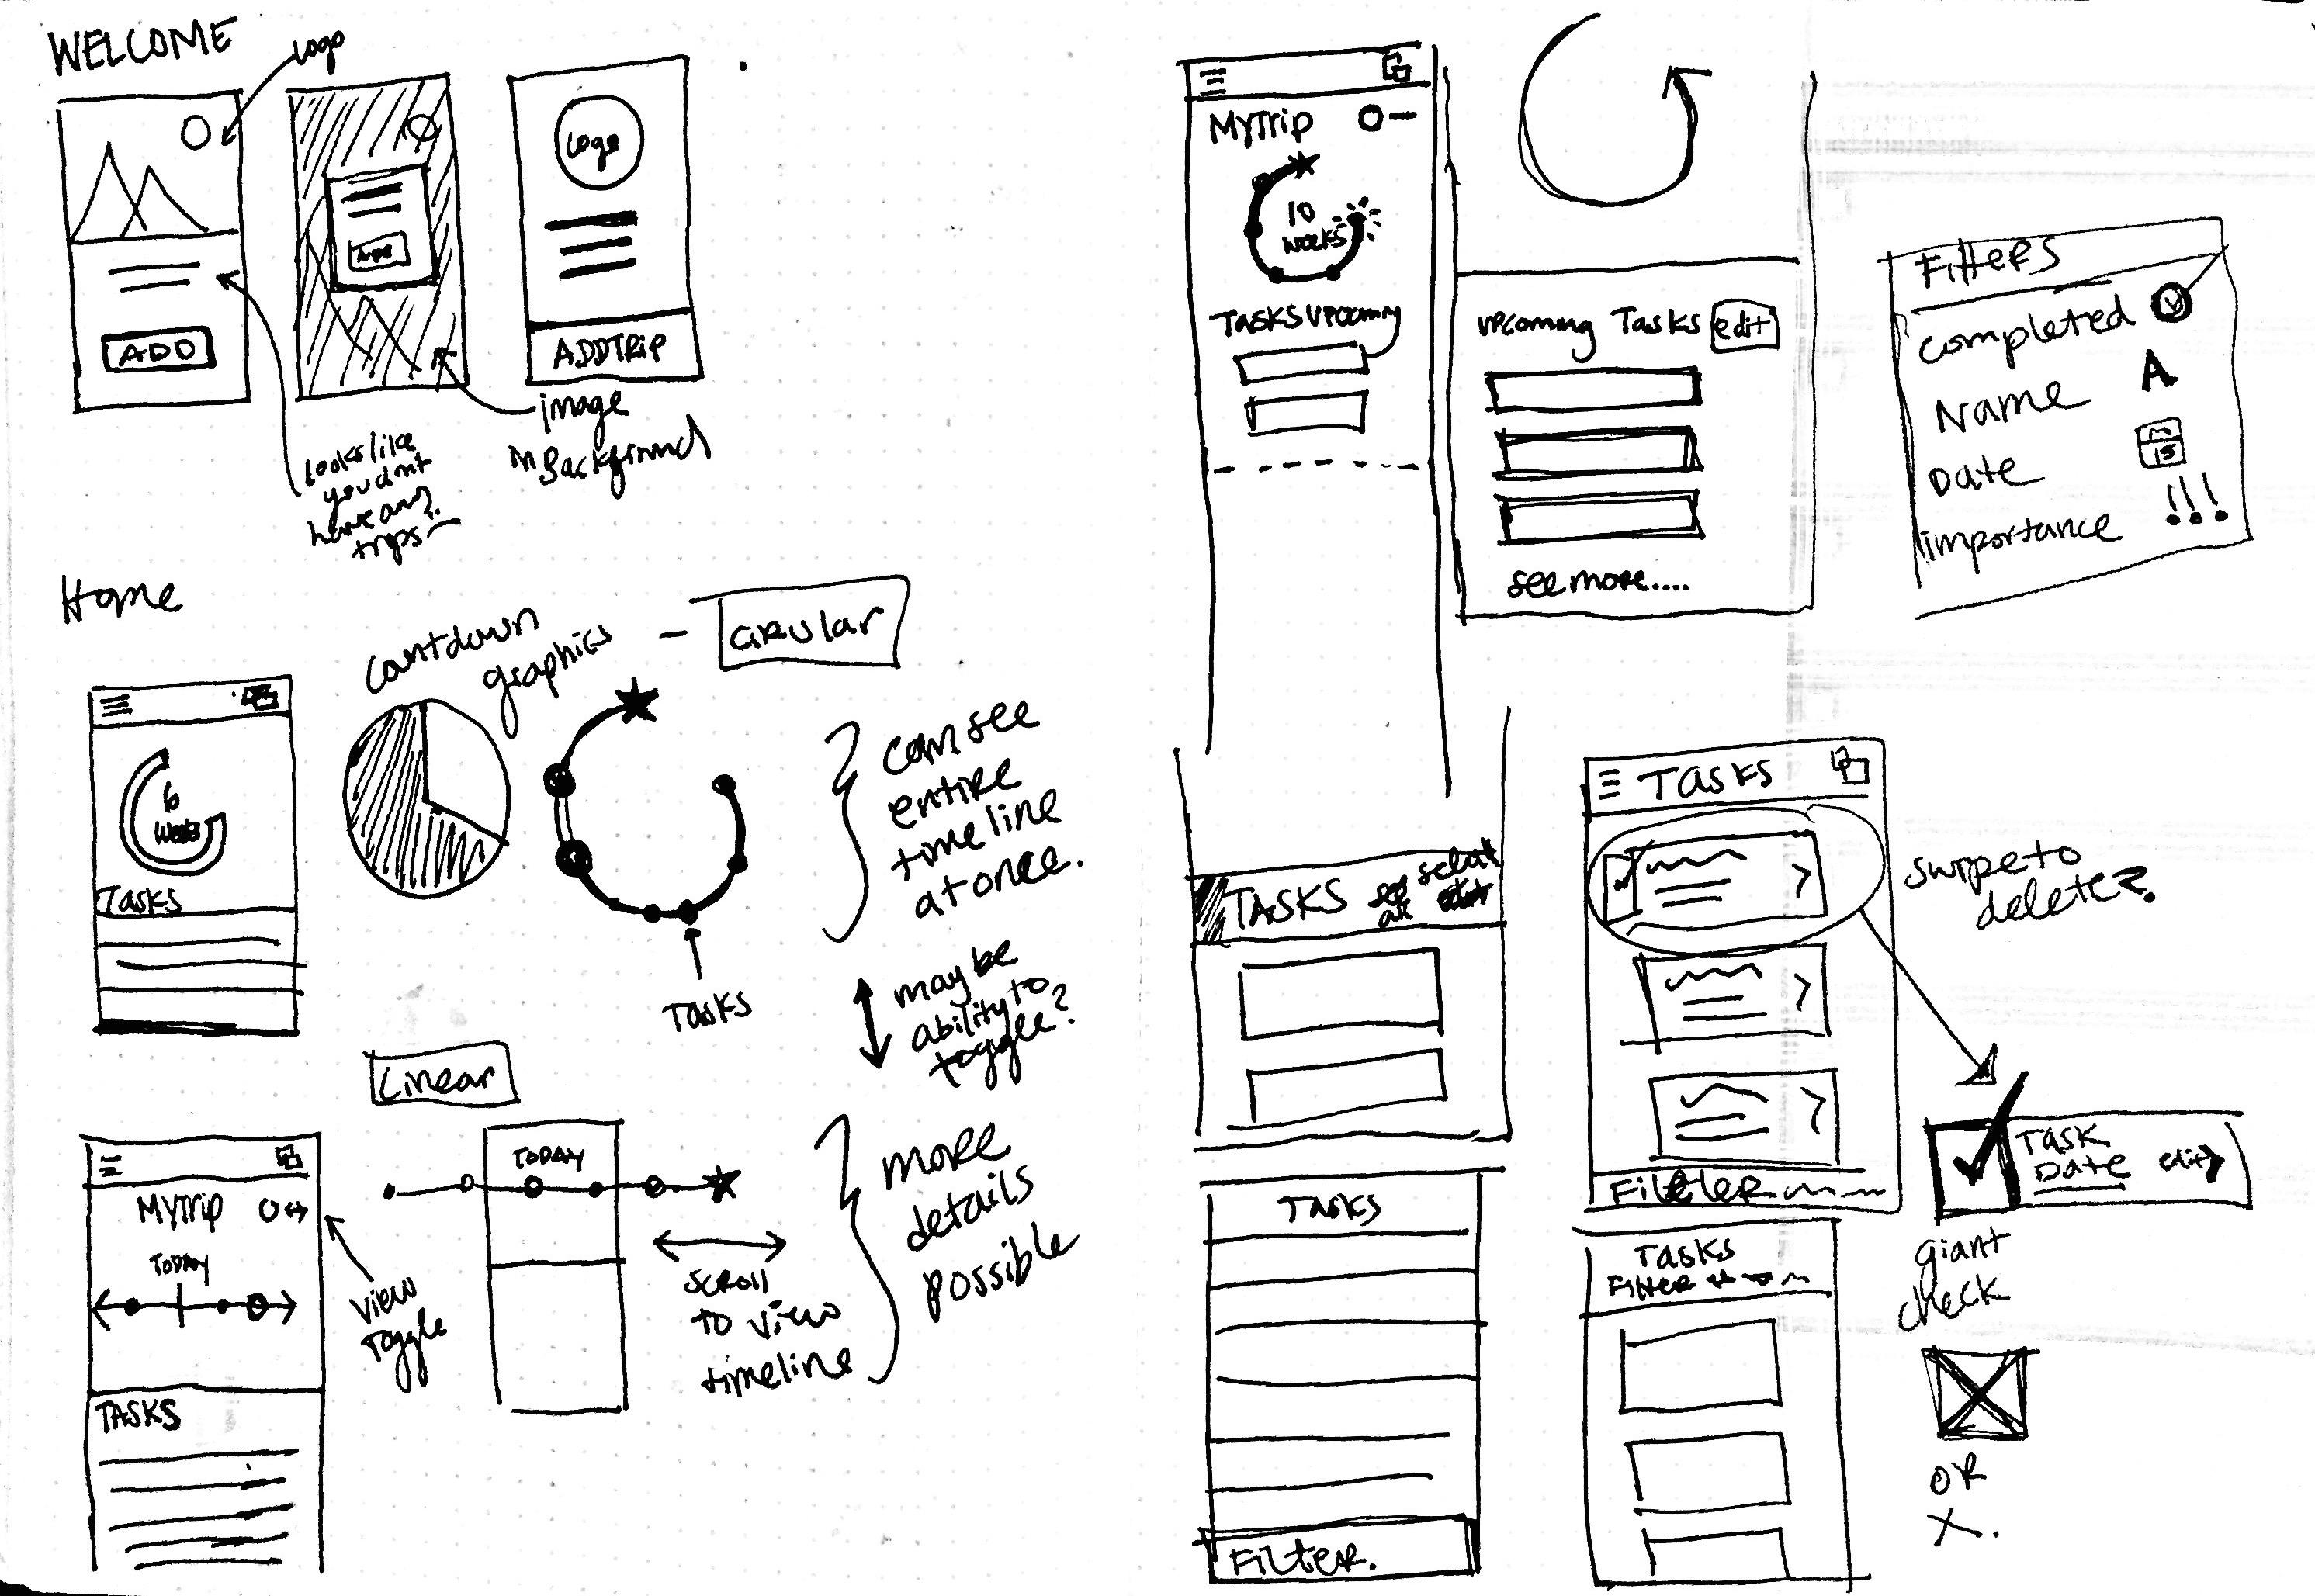 WELCOME
logo
ADD
ADD
Logo
ADD TRIP
image
in Background
Looks like
you dont
have any
trips
Home
countdown
graphics
—
circular
6
weeks
TASKS
TASKS
can see
entire
timeline
at once.
maybe
ability to
toggle?
Linear
MyTrip
TODAY
TASKS
view
toggle
TODAY
SCROLL
TO view
timeline
more
details
possible
MyTrip
10
weeks
TASKS Upcoming
upcoming Tasks edit
see more....
Filters
completed
Name A
Date 15
importance !!!
TASKS see all select
TASKS
Filter.
Tasks
Filter
swipe to
delete?
TASK
DATE edit
giant
check
OR
X.
Tasks
Filter